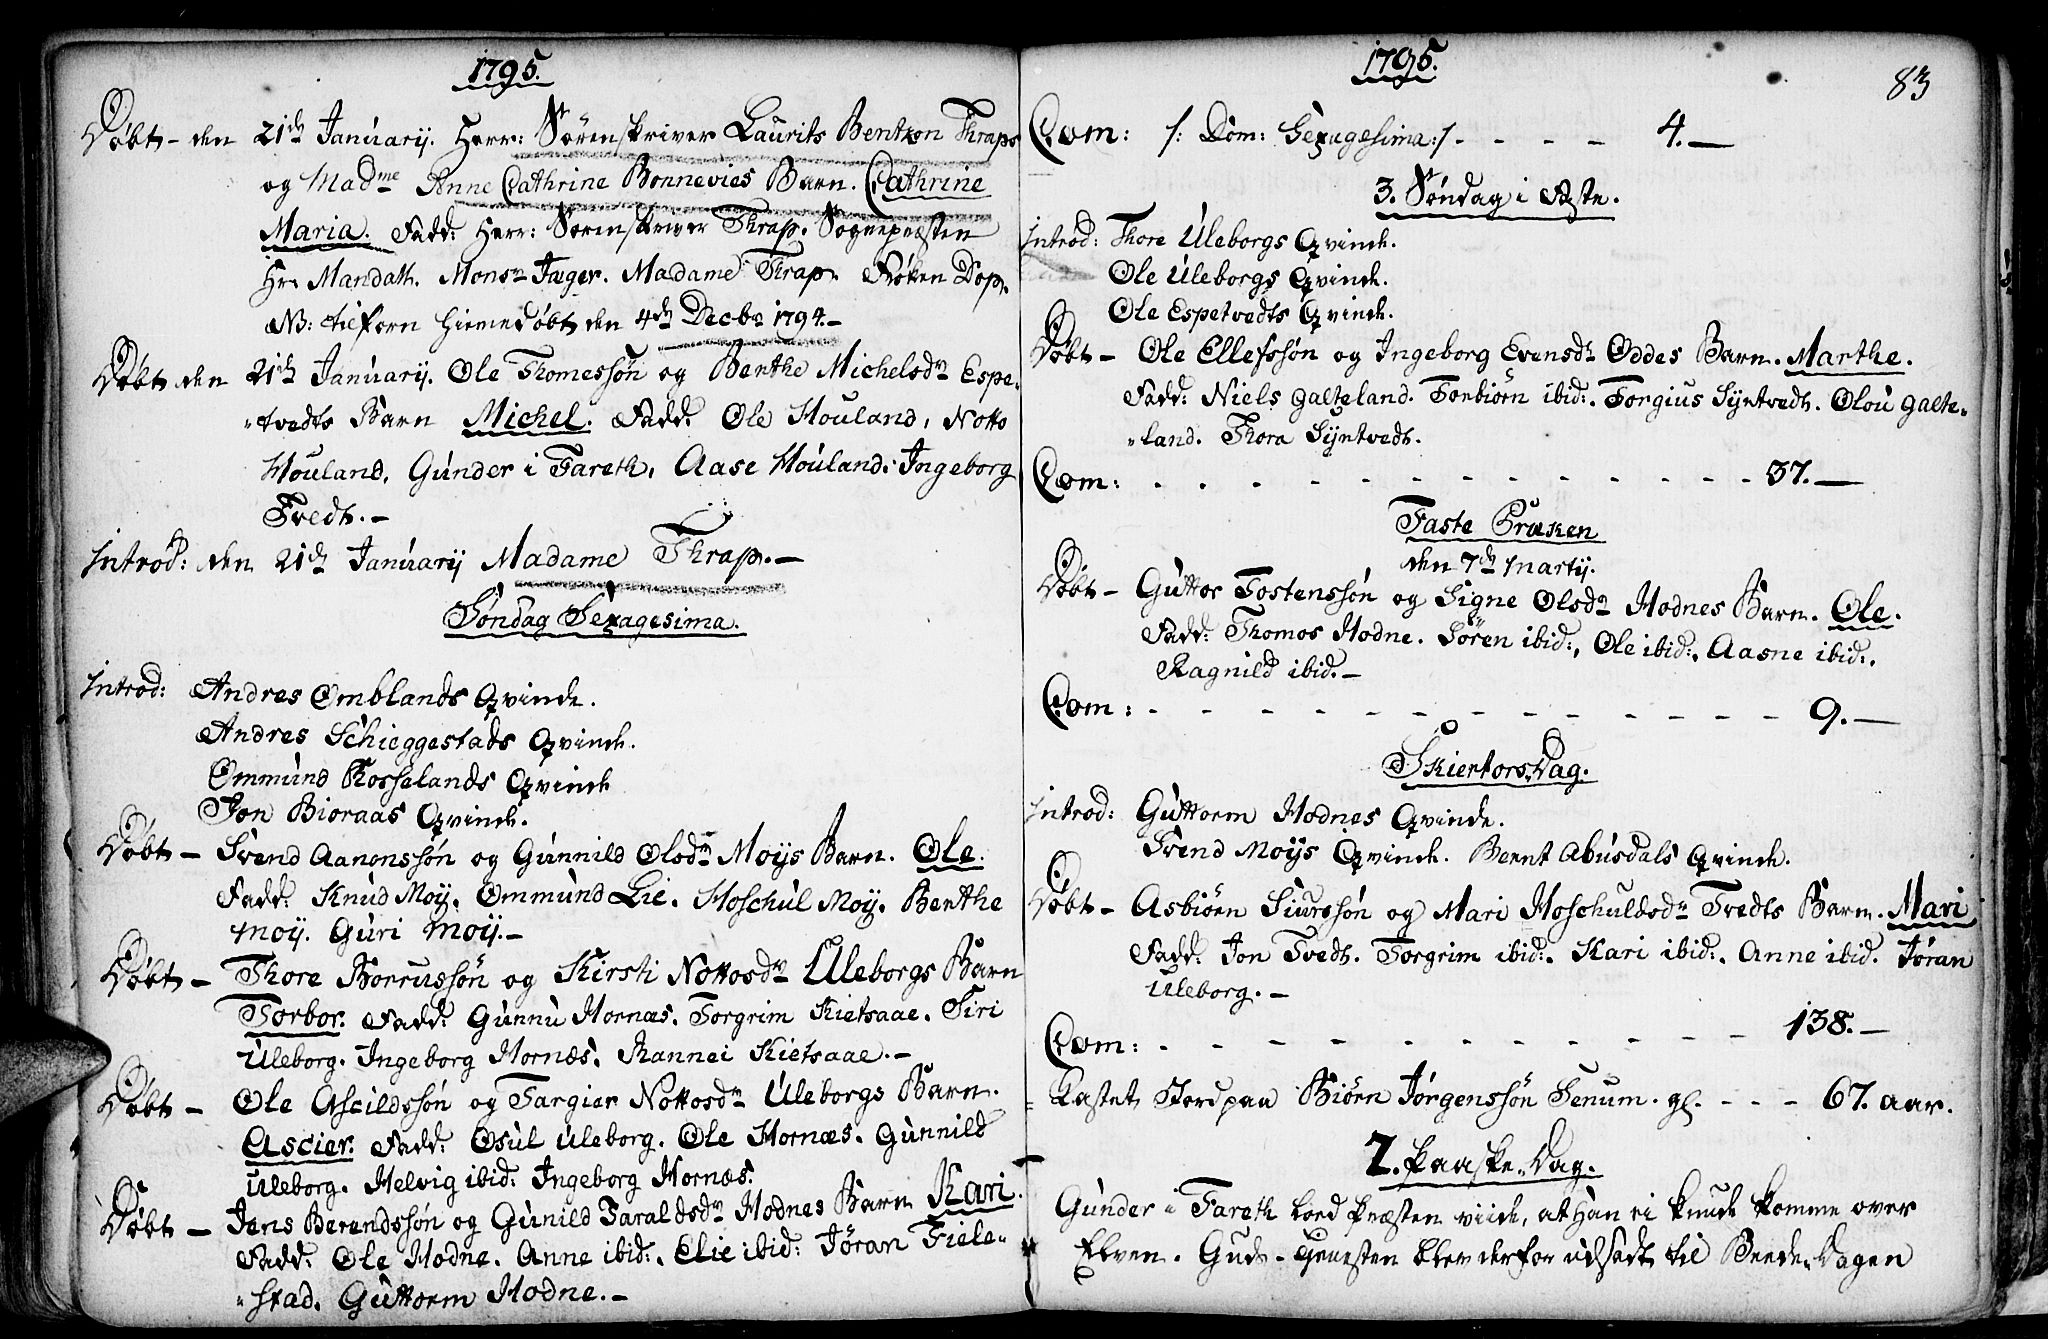 1795.
Døbt – den 21de Januarij. Herr: Sørenskriver Laurits Bentzon Thraps
og Madme Anne Cathrine Bonnevies Barn. Cathrine
Maria. Fadd: Herr: Sørenskriver Thrap. Sognepræsten
Hr. Mandath. Monsr Jæger. Madame Thrap. Frøken Dop.
NB: tilforn hiemmedøbt den 4de Decbr 1794.–
Døbt den 21de Januarij. Ole Thomessøn og Benthe Michelsdr Espe-
-tvedts Barn Michel. Fadd. Ole Houland, Notto
Houland, Gunder i Fareth, Aase Houland. Ingeborg
Tvedt.–
Introd: den 21de Januarij Madame Thrap.–
Søndag Sexagesima.
Introd: Andres Omblands Qvinde.
Andres Schieggestads Qvinde.
Ommund Rosselands Qvinde
Jon Bioraas Qvinde.
Døbt – Svend Aanonssøn og Gunnild Olsdr Moijs Barn. Ole.
Fadd. Knud Moij. Ommund Lie. Hoschul Moij. Benthe
Moij. Guri Moij.–
Døbt – Thore Borrussøn og Kirsti Nottosdr Uleborgs Barn
Torbor. Fadd: Gunnu Hornæs. Torgrim Kietsaae. Siri
Uleborg. Ingeborg Hornæs. Rannei Kietsaae.–
Døbt – Ole Ascildssøn og Targier Nottosdr Uleborgs Barn.
Ascier. Fadd: Osul Uleborg. Ole Hornæs. Gunnild
Uleborg. Helvig ibid: Ingeborg Hornæs.
Døbt – Jens Berendssøn og Gunild Taraldsdr Hodnes Barn Kari.
Fadd: Ole Hodne. Anne ibid:. Elie ibid: Jøran Fiele-
-stad. Guttorm Hodne.–
1795.
83
Com: /: Dom: Sexagesima:/ - - - - 4.–
3. Søndag i Faste.
Introd: Thore Uleborgs Qvinde.
Ole Uleborgs Qvinde.
Ole Espetvedts Qvinde.
Døbt – Ole Ellefssøn og Ingeborg Evensdr Oddes Barn. Marthe.
Fadd: Niels Galteland. Torbiørn ibid:. Torgius Sijntvedt. Olou Galte-
-land. Thora Sijntvedt.
Com: - - - - - - - - - - - - 37.–
Faste Præken
den 7de Martij.
Døbt – Guttor Tostenssøn og Signe Olsdr Hodnes Barn. Ole.
Fadd: Thomos Hodne. Søren ibid:, Ole ibid:, Aasne ibid:,
Ragnild ibid.–
Com: - - - - - - - - - - - - 9.–
SkiertorsDag.
Introd: Guttorm Hodnes Qvinde.
Svend Moijs Qvinde. Bernt Abusdals Qvinde.
Døbt – Asbiørn Siurssøn og Mari Hoschuldsdr Tvedts Barn. Mari
Fadd: Jon Tvedt. Torgrim ibid:. Kari ibid:. Anne ibid. Jøran
Uleborg.–
Com: - - - - - - - - - - - - 138.–
Kastet Jord paa Biørn Jørgenssøn Senum. gl. - - - 67. aar.
2. Paaske-Dag.
Gunder i Fareth lod Præsten viide, at han ei kunde komme over
Elven. Guds-Tienesten blev derfor udsadt til Beede-Dagen